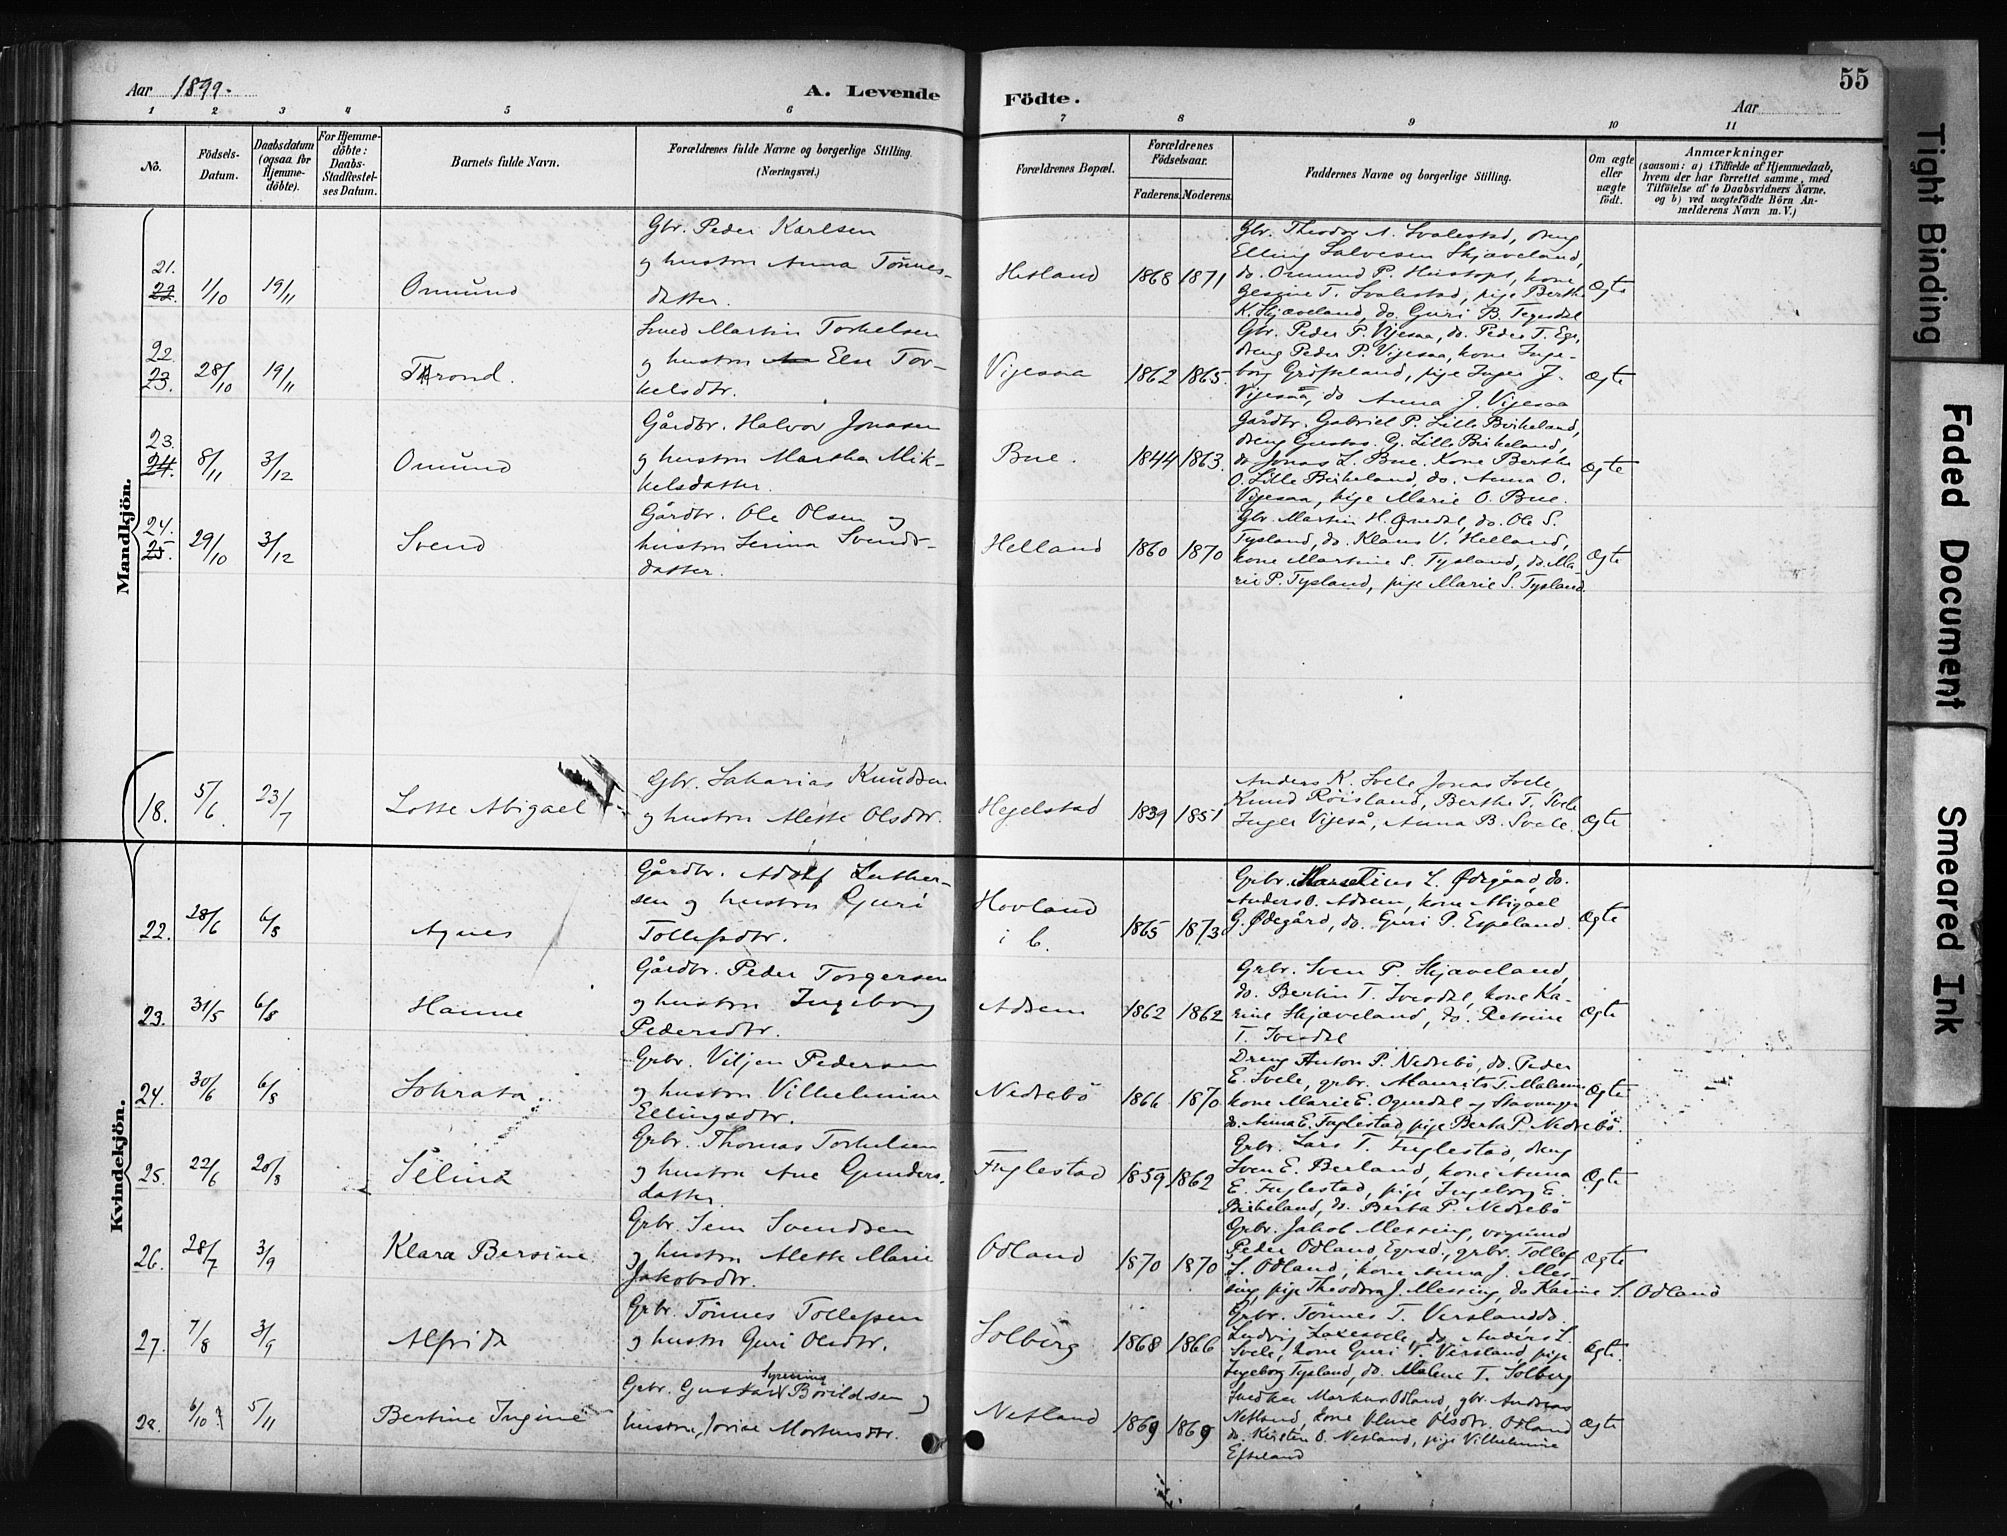 Aar 1899.
A. Levende
Födte.
55
Aar
1 2 3 4 5 6 7 8 9 10 11
No.
Födsels-
Datum.
Daabsdatum
(ogsaa for
Hjemme-
döbte).
For Hjemme-
döbte:
Daabs-
Stadfæstel-
ses Datum.
Barnets fulde Navn.
Forældrenes fulde Navne og borgerlige Stilling.
(Næringsvei.)
Forældrenes Bopæl.
Forældrenes
Födselsaar.
Faderens.
Moderens.
Faddernes Navne og borgerlige Stilling.
Om ægte
eller
uægte
födt.
Anmærkninger
(saasom: a) i Tilfælde af Hjemmedaab,
hvem der har forrettet samme, med
Tilföielse af to Daabsvidners Navne,
og b) ved uægtefödte Börn An-
melderens Navn m. V.)
Mandkjön.
21.
22.
1/10
19/11
Omund
Gbr. Peder Karlsen
og hustru Anna Tönnes-
datter.
Hetland
1868
1871
Gbr. Theodor A. Svalestad, dreng
Elling Salvesen Skjæveland,
do. Omund P. , kone
Gesine T. Svalestad, pige Berthe
K. Skjæveland, do. Guri B. Tegsdal
Ægte
22
23.
28/10
19/11
Thrond.
Smed Martin Torkelsen
og hustru Else Tor-
kelsdtr.
Vigesaa
1862
1865.
Gbr. Peder P. Vigesaa, do. Peder T. Ege,
dreng Peder P. Vigesaa, kone Inge-
borg Gröfseland, pige Inger J.
Vigesaa, do Anna J. Vigesaa
Ægte
23.
24.
8/11
3/12
Omund
Gårdbr. Halvor Jonasen
og hustru Martha Mik-
kelsdatter.
Bue.
1844
1863.
Gårdbr. Gabriel P. Lille Birkeland,
dreng Gustav G. Lille Birkeland,
do Jonas L. Bue. Kone Berthe
O. Lille Birkeland, do. Anna O.
Vigesaa, pige Marie O. Bue.
Ægte
24.
25.
29/10
3/12
Svend
Gårdbr. Ole Olsen og
hustru Serina Svends-
datter.
Helland
1860
1870
Gbr. Martin H. Gnedal, do. Ole S.
Tysland, do. Klaus V. Helland,
kone Martine S. Tysland, do. Ma-
rie P. Tysland, pige Marie S. Tysland.
Ægte
Kvindekjön.
18.
5/6
23/7
Lotte Abigael
Gbr. Sakarias Knudsen
og hustru Alette Olsdtr.
Hegelstad
1839
1851
Anders K. Svele Jonas Svele
Knud Röisland, Berthe T. Svele
Inger Vigeså, Anna B. Svele.
Ægte
22.
28/6
6/8
Agnes
Gårdbr. Adolf Luther-
sen og hustru Guri
Tollefsdtr.
Hovland
i b.
1865
1873
Grbr. L. Ödegaad, do.
Anders O. Adsem, kone Abigael
G. Ødegård, do. Guri P. Espeland.
Ægte
23.
31/5
6/8
Hanne
Gårdbr. Peder Torgersen
og hustru Ingeborg
Pedersdtr.
Adsem
1862
1862
Grbr. Sven P. Skjæveland,
do. Bertin T. Ivesdal, kone Ka-
rine Skjæveland, do.
T. Ivesdal
Ægte
24.
30/6
6/8
Grbr. Viljen Pedersen
og hustru Vilhelmine
Ellingsdtr.
Nedrebö
1866
1870
Dreng Anton P. Nedrebö, do. Peder
E. Svele, grbr. Maurits T.
kone Marie E. Ognedal og Stavanger
do. Anna E. Fuglestad pige Berta P. Nedrebö.
Ægte
25.
22/6
20/8
Selina
Grbr. Thomas Torkelsen
og hustru Ane Gunders-
datter
Fuglestad
1859
1862
Grbr. Lars T. Fuglestad, dreng
Sven E. Berland, kone Anna
E. Fuglestad, pige Ingeborg E.
Birkeland, do. Berta P. Nedrebö
Ægte
26.
28/7
3/9
Klara Bersine
Grbr. Sem Svendsen
og hustru Alette Marie
Jakobsdtr.
Odland
1870
1870
Grbr. Jakob Messing,
Peder Odland, Egrsd., grbr. Tollef
S. Odland, kone Anna J. Mes-
sing, pige Theodora J. Messing, do Karine S. Odland
Ægte
27.
7/8
3/9
Alfrida
Grbr. Tönnes Tollefsen
og hustru Guri Olsdtr.
Solberg
1868
1866
Grbr. Tönnes T. Versland do.
Ludvig Laxesvele, do. Anders L.
Svele, kone Guri T. Versland, pige
Ingeborg Tysland, do. Malene T. Solberg
Ægte.
28.
6/10
5/11
Bertine Ingine
Grbr. Gustav Bövildsen og
hustru Jorine Mortensdtr.
Netland
1869
1869
Snedker Markus Odland, gbr. Andreas
Netland, kone Oline Olsdtr. Odland
do. Kirsten O. Netland, pige Vilhelmine
Efteland
Ægte
Tight Binding
Faded Document
Smeared Ink